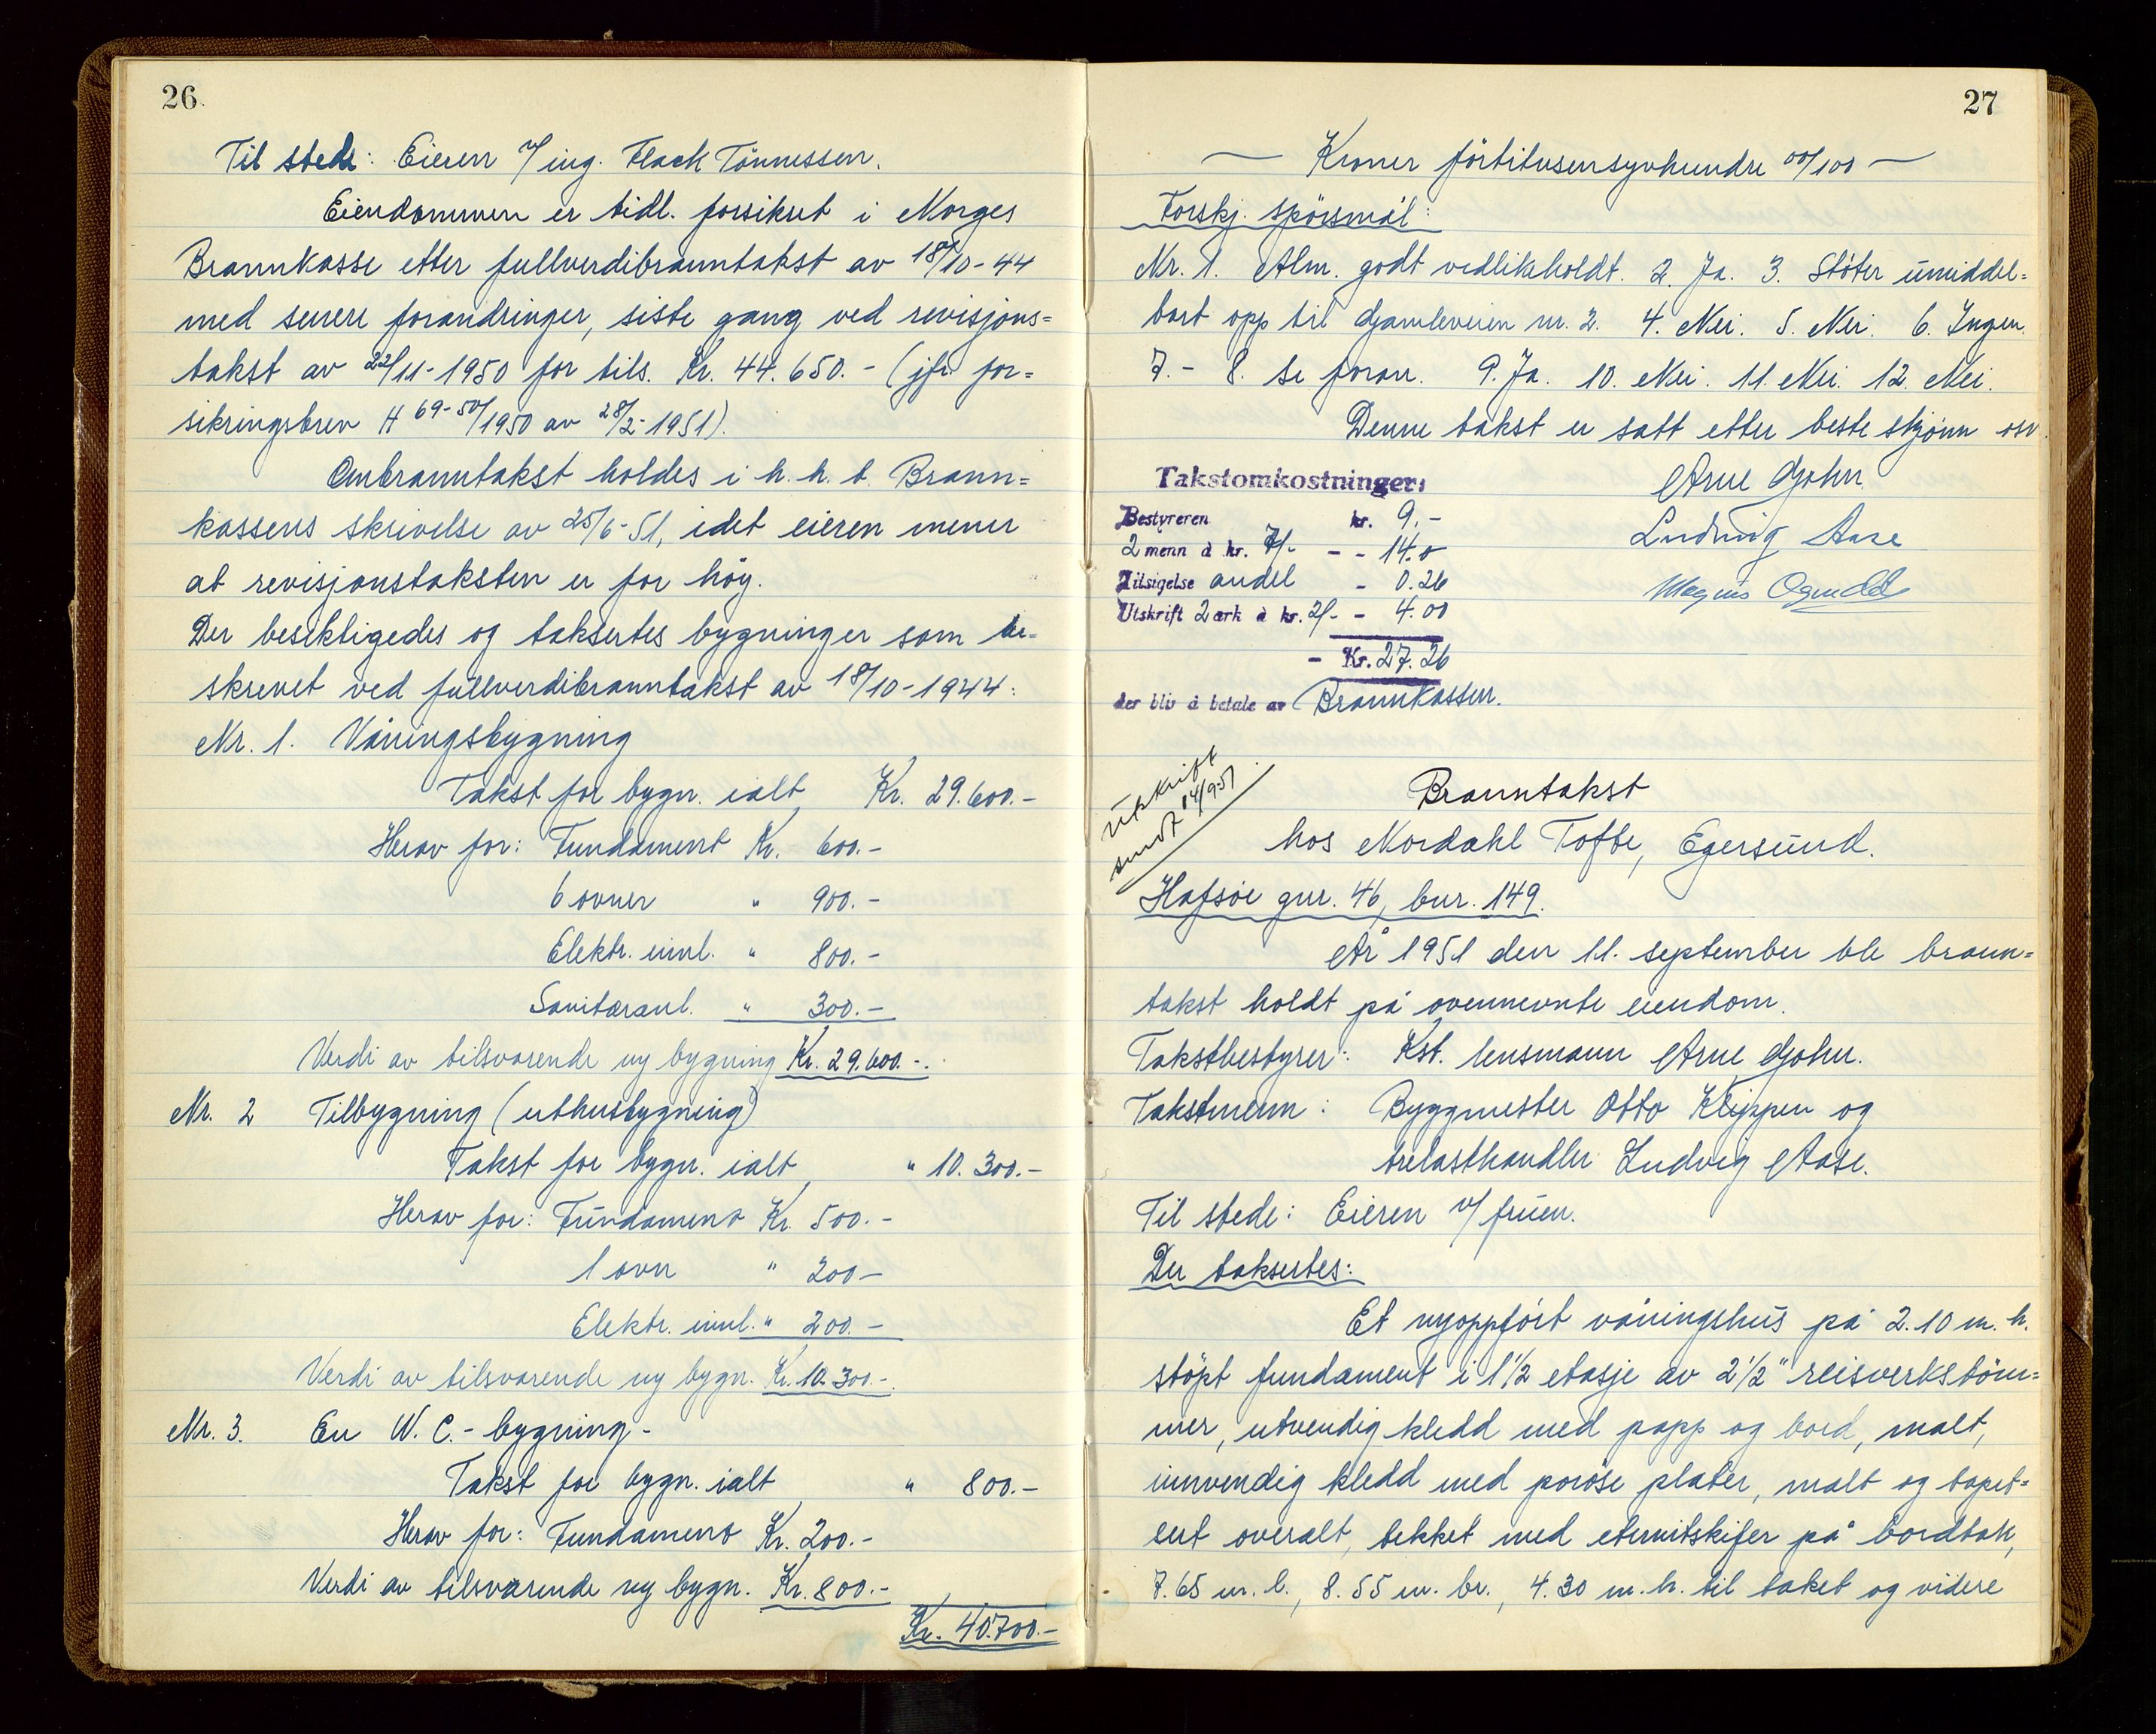 26.
Til stede: Eieren v/ing. Flack Tönnessen.
Eiendommen er tidl. forsikret i Norges
Brannkasse etter fullverdibranntakst av 18/10-44
med senere forandringer, siste gang ved revisjons=
takst av 22/11-1950 for tils. Kr. 44.650.- (jfr for=
sikringsbrev H 69-50/1950 av 28/2-1951).
Ombranntakst holdes i h. h. t. Brann=
kassens skrivelse av 25/6-51, idet eieren mener
at revisjonstaksten er for høy.
Der besiktigedes og taksertes bygninger som be=
skrevet ved fullverdibranntakst av 18/10-1944:
Nr. 1. Våningsbygning
Takst for bygn. ialt Kr. 29.600.-
Herav for: Fundament Kr. 600.-
6 ovner " 900.-
Elektr. innl. " 800.-
Sanitæranl. " 300.-
Verdi av tilsvarende ny bygning Kr. 29.600.-.
Nr. 2 Tilbygning (uthusbygning)
Takst for bygn. ialt " 10.300.-
Herav for: Fundament Kr. 500.-
1 ovn " 200-
Elektr. innl. " 200.-
Verdi av tilsvarende ny bygn. Kr. 10.300.-.
Nr. 3. En W. C.- bygning-
Takst for bygn. ialt " 800.-
Herav for: Fundament Kr. 200.-
Verdi av tilsvarende ny bygn. Kr. 800.-
Kr. 40.700.-
27
— Kroner förtitusensyvhundre 00/100 —
Forskj. spörsmål:
Nr. 1. Alm. godt vedlikeholdt. 2. Ja. 3. Stöter umiddel=
bart opp til Gamleveien nr. 2. 4. Nei. 5. Nei. 6. Ingen.
7.- 8. Se foran. 9. Ja. 10. Nei. 11. Nei. 12. Nei.
Denne takst er satt etter beste skjönn osv.
Takstomkostninger:
Bestyreren kr. 9.-
2 menn à kr. 7/- - - 14.0
Tilsigelse andel - 0.26
Utskrift 2 ark à kr. 2/- - 4.00
- Kr. 27.26
der bliv å betale av Brannkassen.
Arne Gjohn
Ludvig Aase
Magnus
Utskrift
sendt 14/9-51.
Branntakst
hos Nordahl Tofte, Egersund.
Hafsöe gnr. 46, bnr. 149.
År 1951 den 11. september ble brann=
takst holdt på ovennevnte eiendom.
Takstbestyrer: Kst. lensmann Arne Gjohn.
Takstmenn: Byggmester Otto Kleppen og
trelasthandler Ludvig Aase.
Til stede: Eieren v/ fruen.
Der taksertes:
Et nyoppfört våningshus på 2.10 m. h.
stöpt fundament i 1 1/2 etasje av 2 1/2" reisverkstöm=
mer, utvendig kledd med papp og bord, malt,
innvendig kledd med poröse plater, malt og tapet=
sert overalt, tekket med eternitskifer på bordtak,
7.65 m. l., 8.55 m. br., 4.30 m. h. til taket og videre